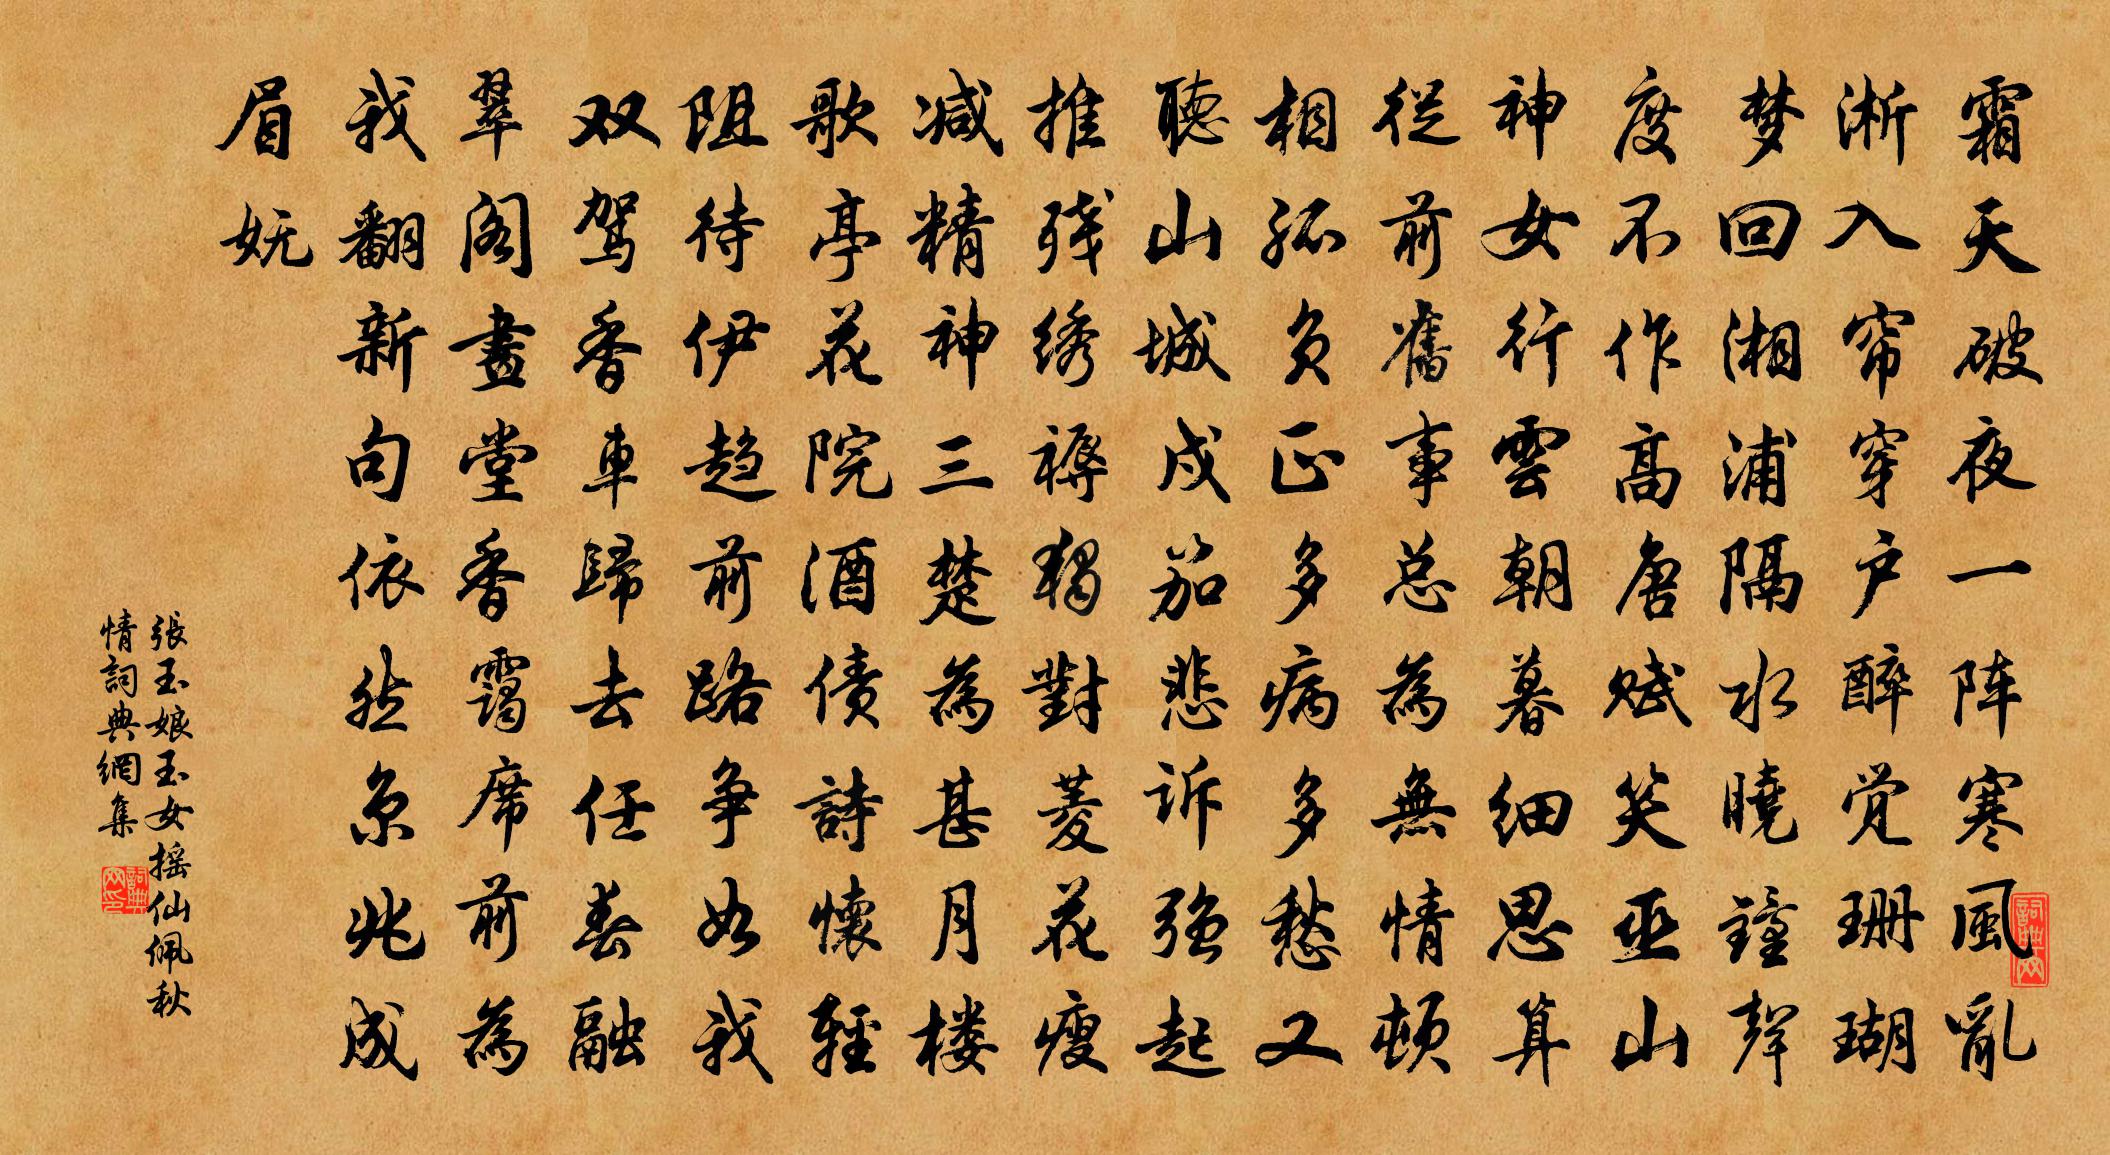 霜天破夜一阵寒風亂
淅入帘穿户醉觉珊瑚
梦回湘浦隔水曉鐘聲
度不作高唐赋笑巫山
神女行雲朝暮细思算
從前舊事总為無情顿
相孤负正多多病多愁又
聽山城戍笳悲诉强起
推残绣褥獨對菱花瘦
减精神三楚為甚月楼
歌亭花院酒债詩懷轻
阻待伊趋前路争如我
双驾香車歸去任春融
翠阁畫堂香靄席前為
我翻新句依然京兆成
眉妩
張玉娘玉女摇仙佩秋
情詞典網集
詞典网
詞典网印